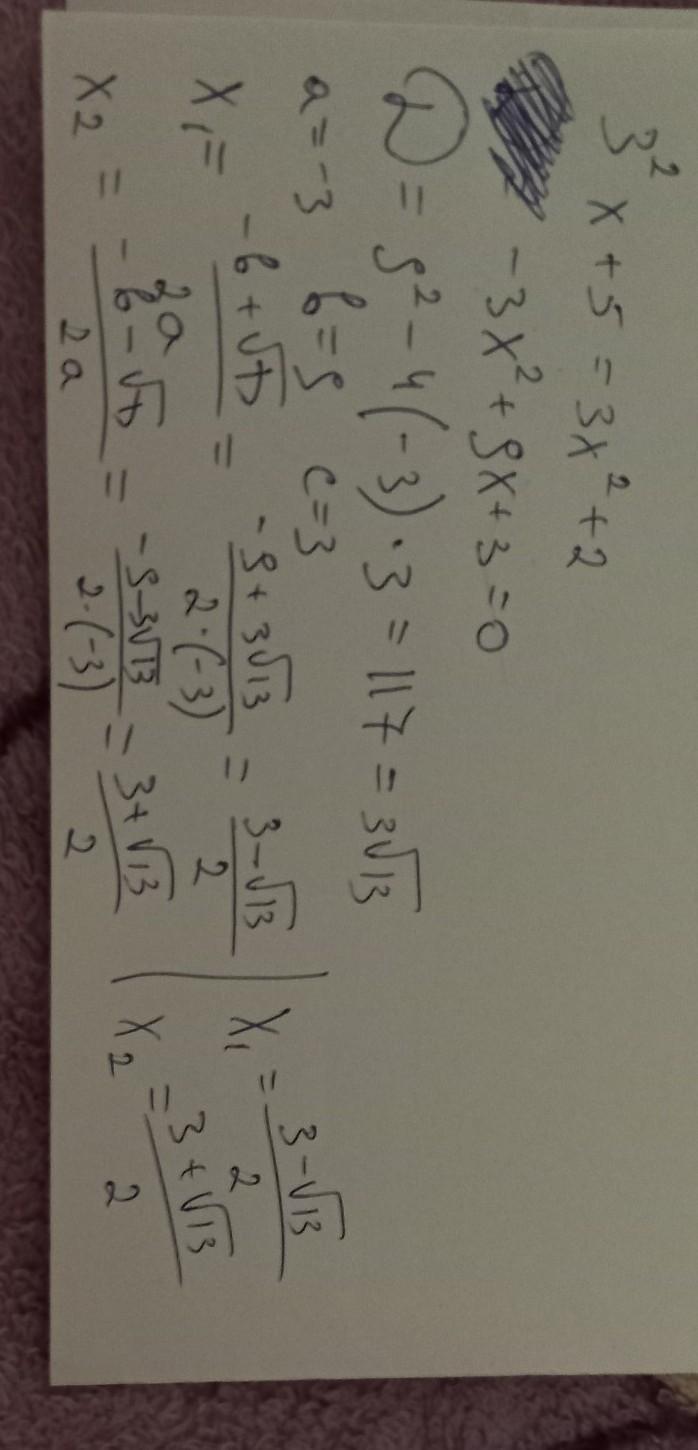 3² x + 5 = 3x² + 2
- 3x² + 9x + 3 = 0
D = 9² - 4(-3) · 3 = 117 = 3√13
a = -3 b = 9 c = 3
x₁ = (-b + √D)/(2a) = (-9 + 3√13)/(2·(-3)) = (3 - √13)/2 | x₁ = (3 - √13)/2
x₂ = (-b - √D)/(2a) = (-9 - 3√13)/(2·(-3)) = (3 + √13)/2 | x₂ = (3 + √13)/2